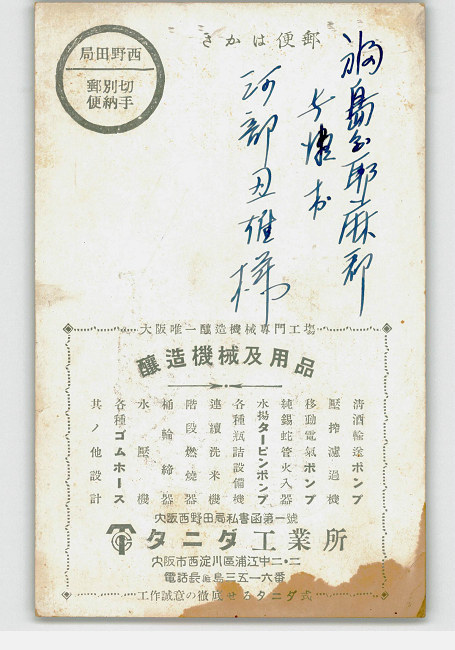 郵便はかき
西野田局
切手別納郵便
福島県耶麻郡
阿部丑雄様
大阪唯一醸造機械専門工場
醸造機械及用品
清酒輸送ポンプ
壓搾濾過機
移動電氣ポンプ
純錫蛇管火入器
水揚タービンポンプ
各種瓶詰設備機
連續洗米機
階段燃燒器
桶輪締器
水壓機
各種ゴムホース
其ノ他設計
大阪西野田局私書函第一號
タニダ工業所
大阪市西淀川區浦江中二・二
電話長福島三五一六番
工作誠意の徹底せるタニダ式